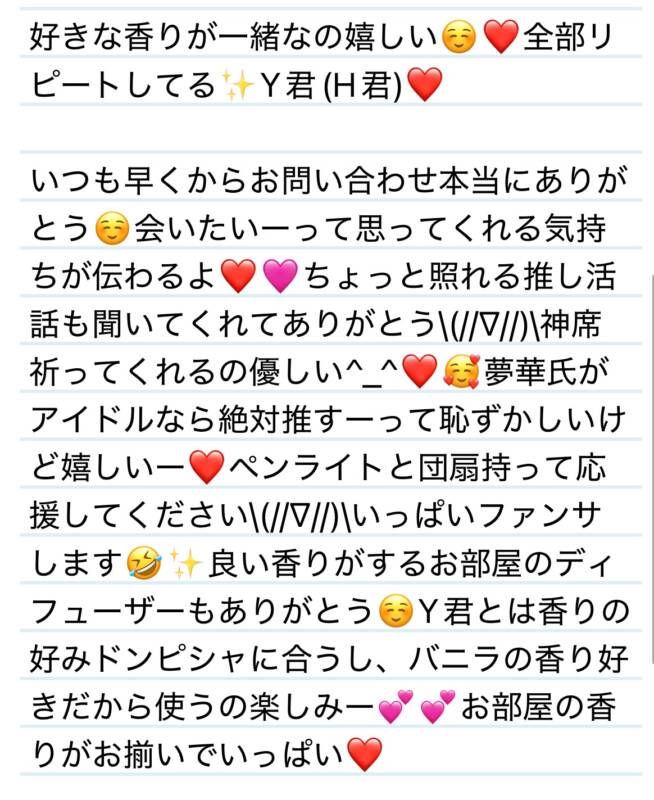 好きな香りが一緒なの嬉しい☺️❤️全部リ
ピートしてる✨Y君(H君)❤️
いつも早くからお問い合わせ本当にありが
とう☺️会いたいーって思ってくれる気持
ちが伝わるよ❤️🩷ちょっと照れる推し活
話も聞いてくれてありがとう\(//∇//)\神席
祈ってくれるの優しい^_^❤️🥰夢華氏が
アイドルなら絶対推すーって恥ずかしいけ
ど嬉しいー❤️ペンライトと団扇持って応
援してください\(//∇//)\いっぱいファンサ
します🤣✨良い香りがするお部屋のディ
フューザーもありがとう☺️Y君とは香りの
好みドンピシャに合うし、バニラの香り好
きだから使うの楽しみー💕💕お部屋の香
りがお揃いでいっぱい❤️